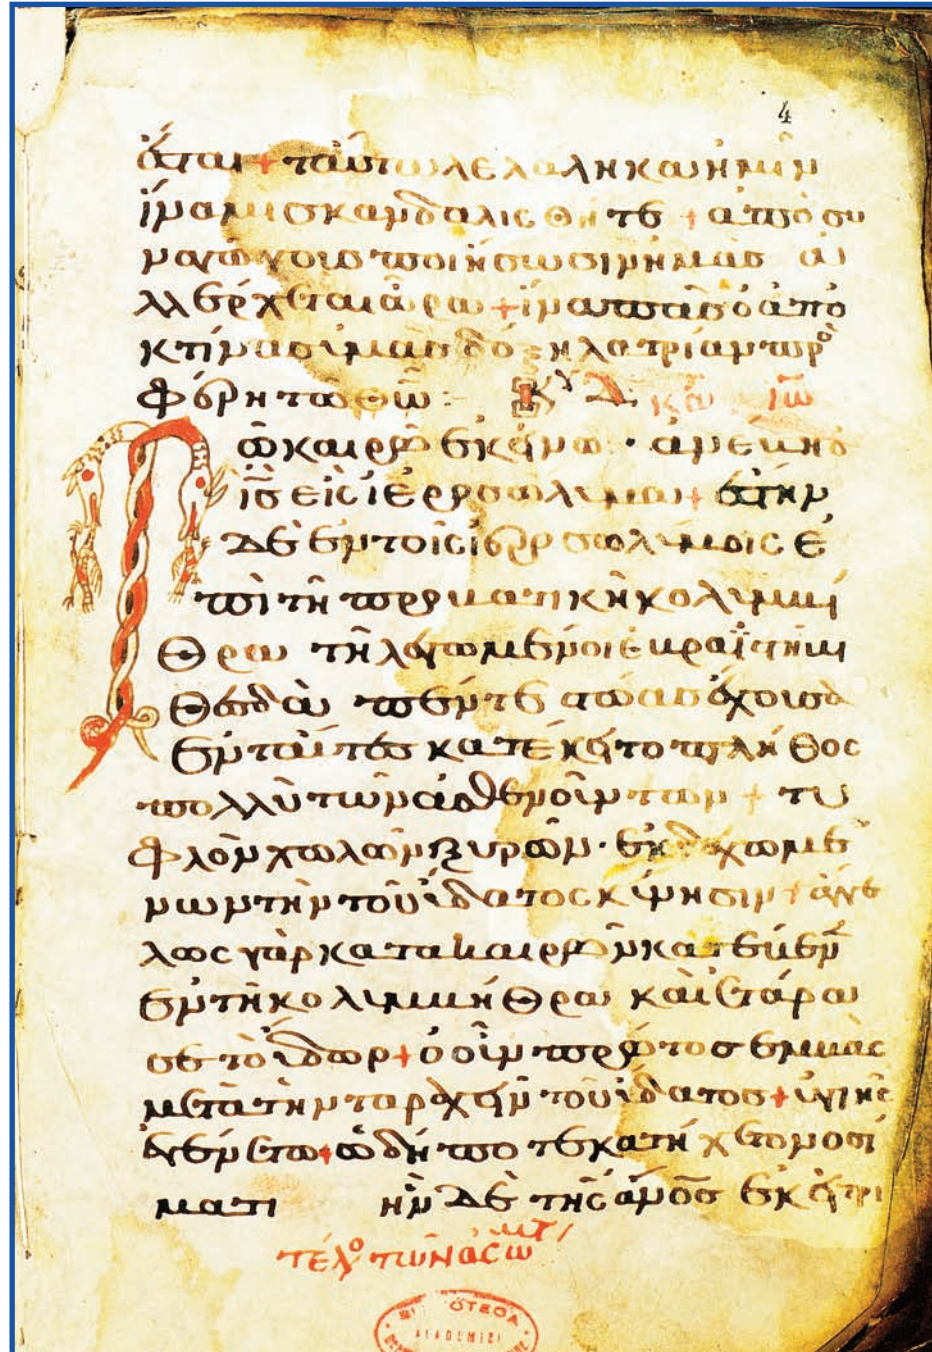 4
ἅπαι + ταύτω λελάληκα ἡμῖν
ἵνα μι σκανδαλισθῆτε + ἀποσυ
ναγώγοις ποιήσωσιν ἡμᾶς ἀ
λλ ἔρχεται ὥρω + ἵνα πᾶς ὁ ἀπο
κτίνας ἱμᾶς δόξη λατρίαν προ
φέρη τῶ θῶ
ῶ καιρῶ ἐκείνω · ἀνέυηο
ἰς εἰς ἱεροσωλιμα + ἔστην
Δὲ ἐν τοῖς ἱεροσωλύμοις ἐ
πὶ τῆ προματικῆ κολιμμί
θρα τῆ λεγωμένοι ἑμραΐτημ
θεσδὰ πέντε στωὰς ἔχοισα
ἐν ταύτες κατέκητο πλῆθος
πολλῦ τῶν ἀσθενοῖντων + τυ
φλὸν χωλῶν ξυρῶν · ἐκδεχωμέ
νων τὴν τοῦ ὕδατος κίνησιν + ἄγγε
λωος γὰρ κατα καιρῶν κατεύεν
ἐν τῆ κολιμμήθρω καὶ ἐτάρω
σε τὸ ὕδωρ + ὁ οἶν πρῶτος εμμὰς
μετὰ τὴν ταροχεὴν τοῦ ὕδατος + ὑγιὴς
ἐγένετω + ὡ δήποτε κατήχετο νοσί
ματι ἦν Δὲ τῆς ἄνος ἐκεῖ τρι
τέλο τῶν ἀσω ματ